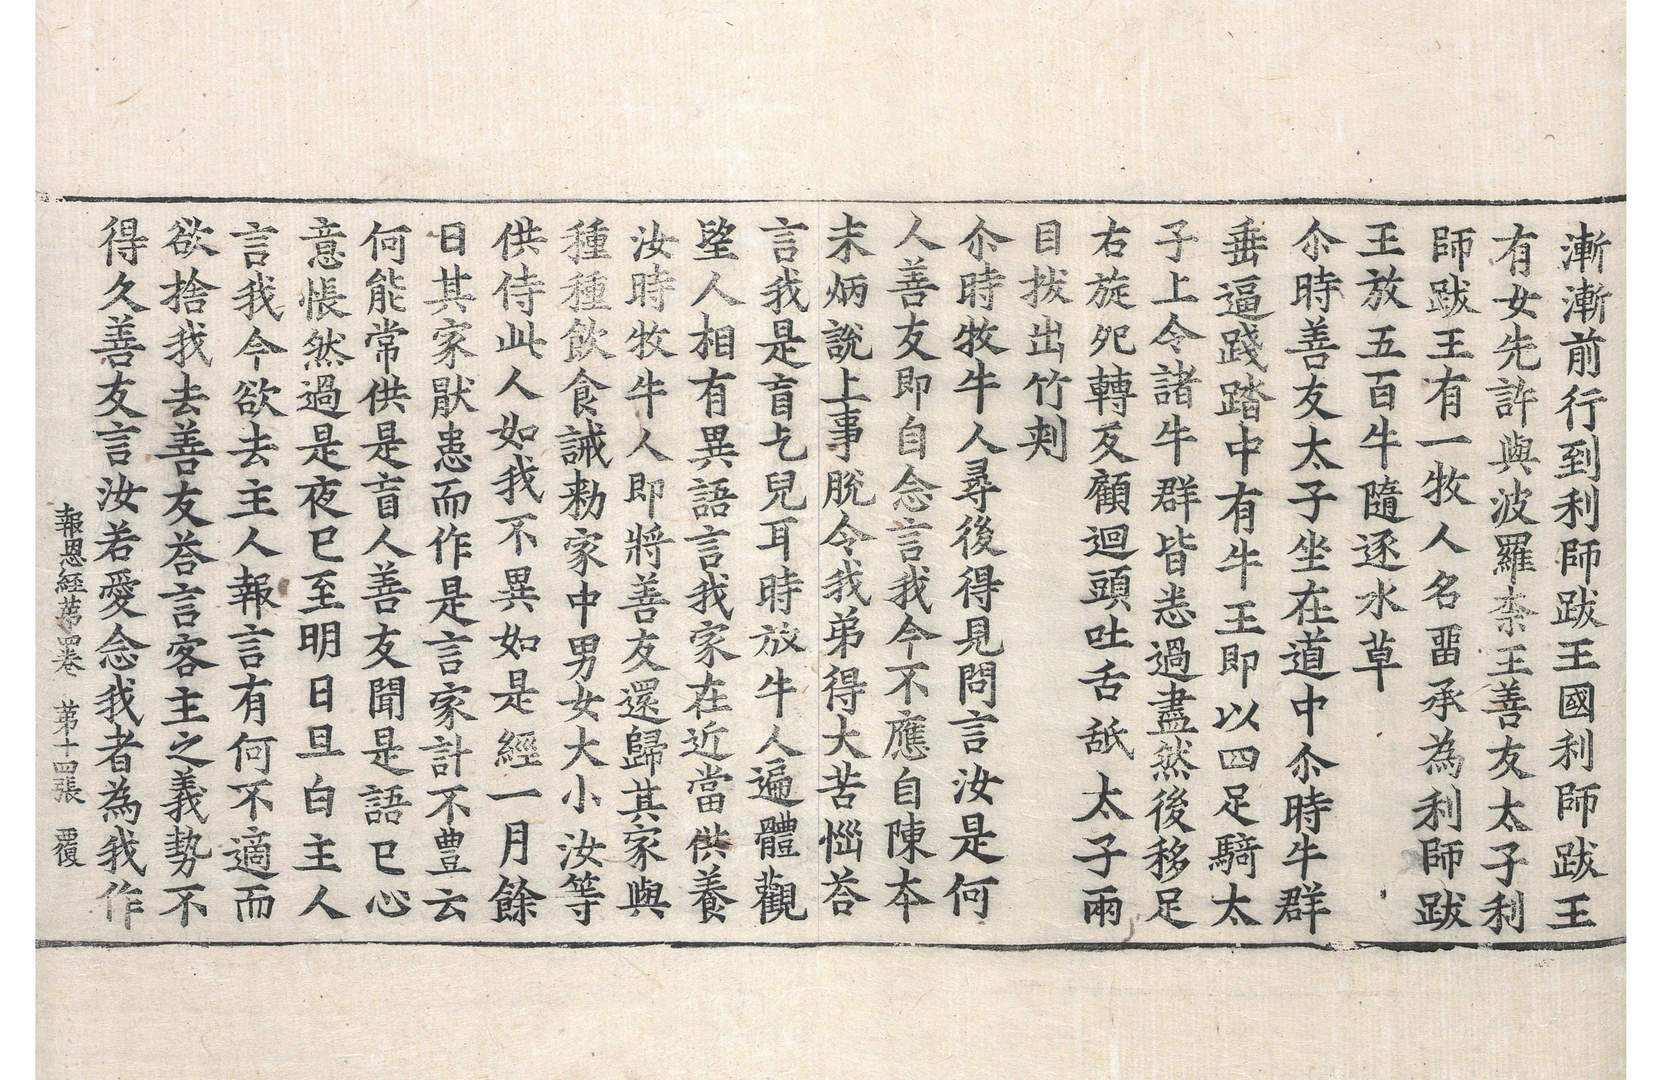 漸漸前行到利師跋王國利師跋王
有女先許與波羅柰王善友太子利
師跋王有一牧人名畱承為利師跋
王放五百牛隨逐水草
尒時善友太子坐在道中尒時牛群
垂逼踐踏中有牛王即以四足騎太
子上令諸牛群皆悉過盡然後移足
右旋宛轉反顧迴頭吐舌舐太子兩
目拔出竹刾
尒時牧牛人尋後得見問言汝是何
人善友即自念言我今不應自陳本
末炳說上事脫令我弟得大苦惱荅
言我是盲乞兒耳時放牛人遍體觀
望人相有異語言我家在近當供養
汝時牧牛人即將善友還歸其家與
種種飲食誡勑家中男女大小汝等
供侍此人如我不異如是經一月餘
日其家猒患而作是言家計不豊云
何能常供是盲人善友聞是語已心
意悵然過是夜已至明日旦白主人
言我今欲去主人報言有何不適而
欲捨我去善友荅言客主之義勢不
得久善友言汝若愛念我者為我作
報恩經苐四卷　苐十四張　覆